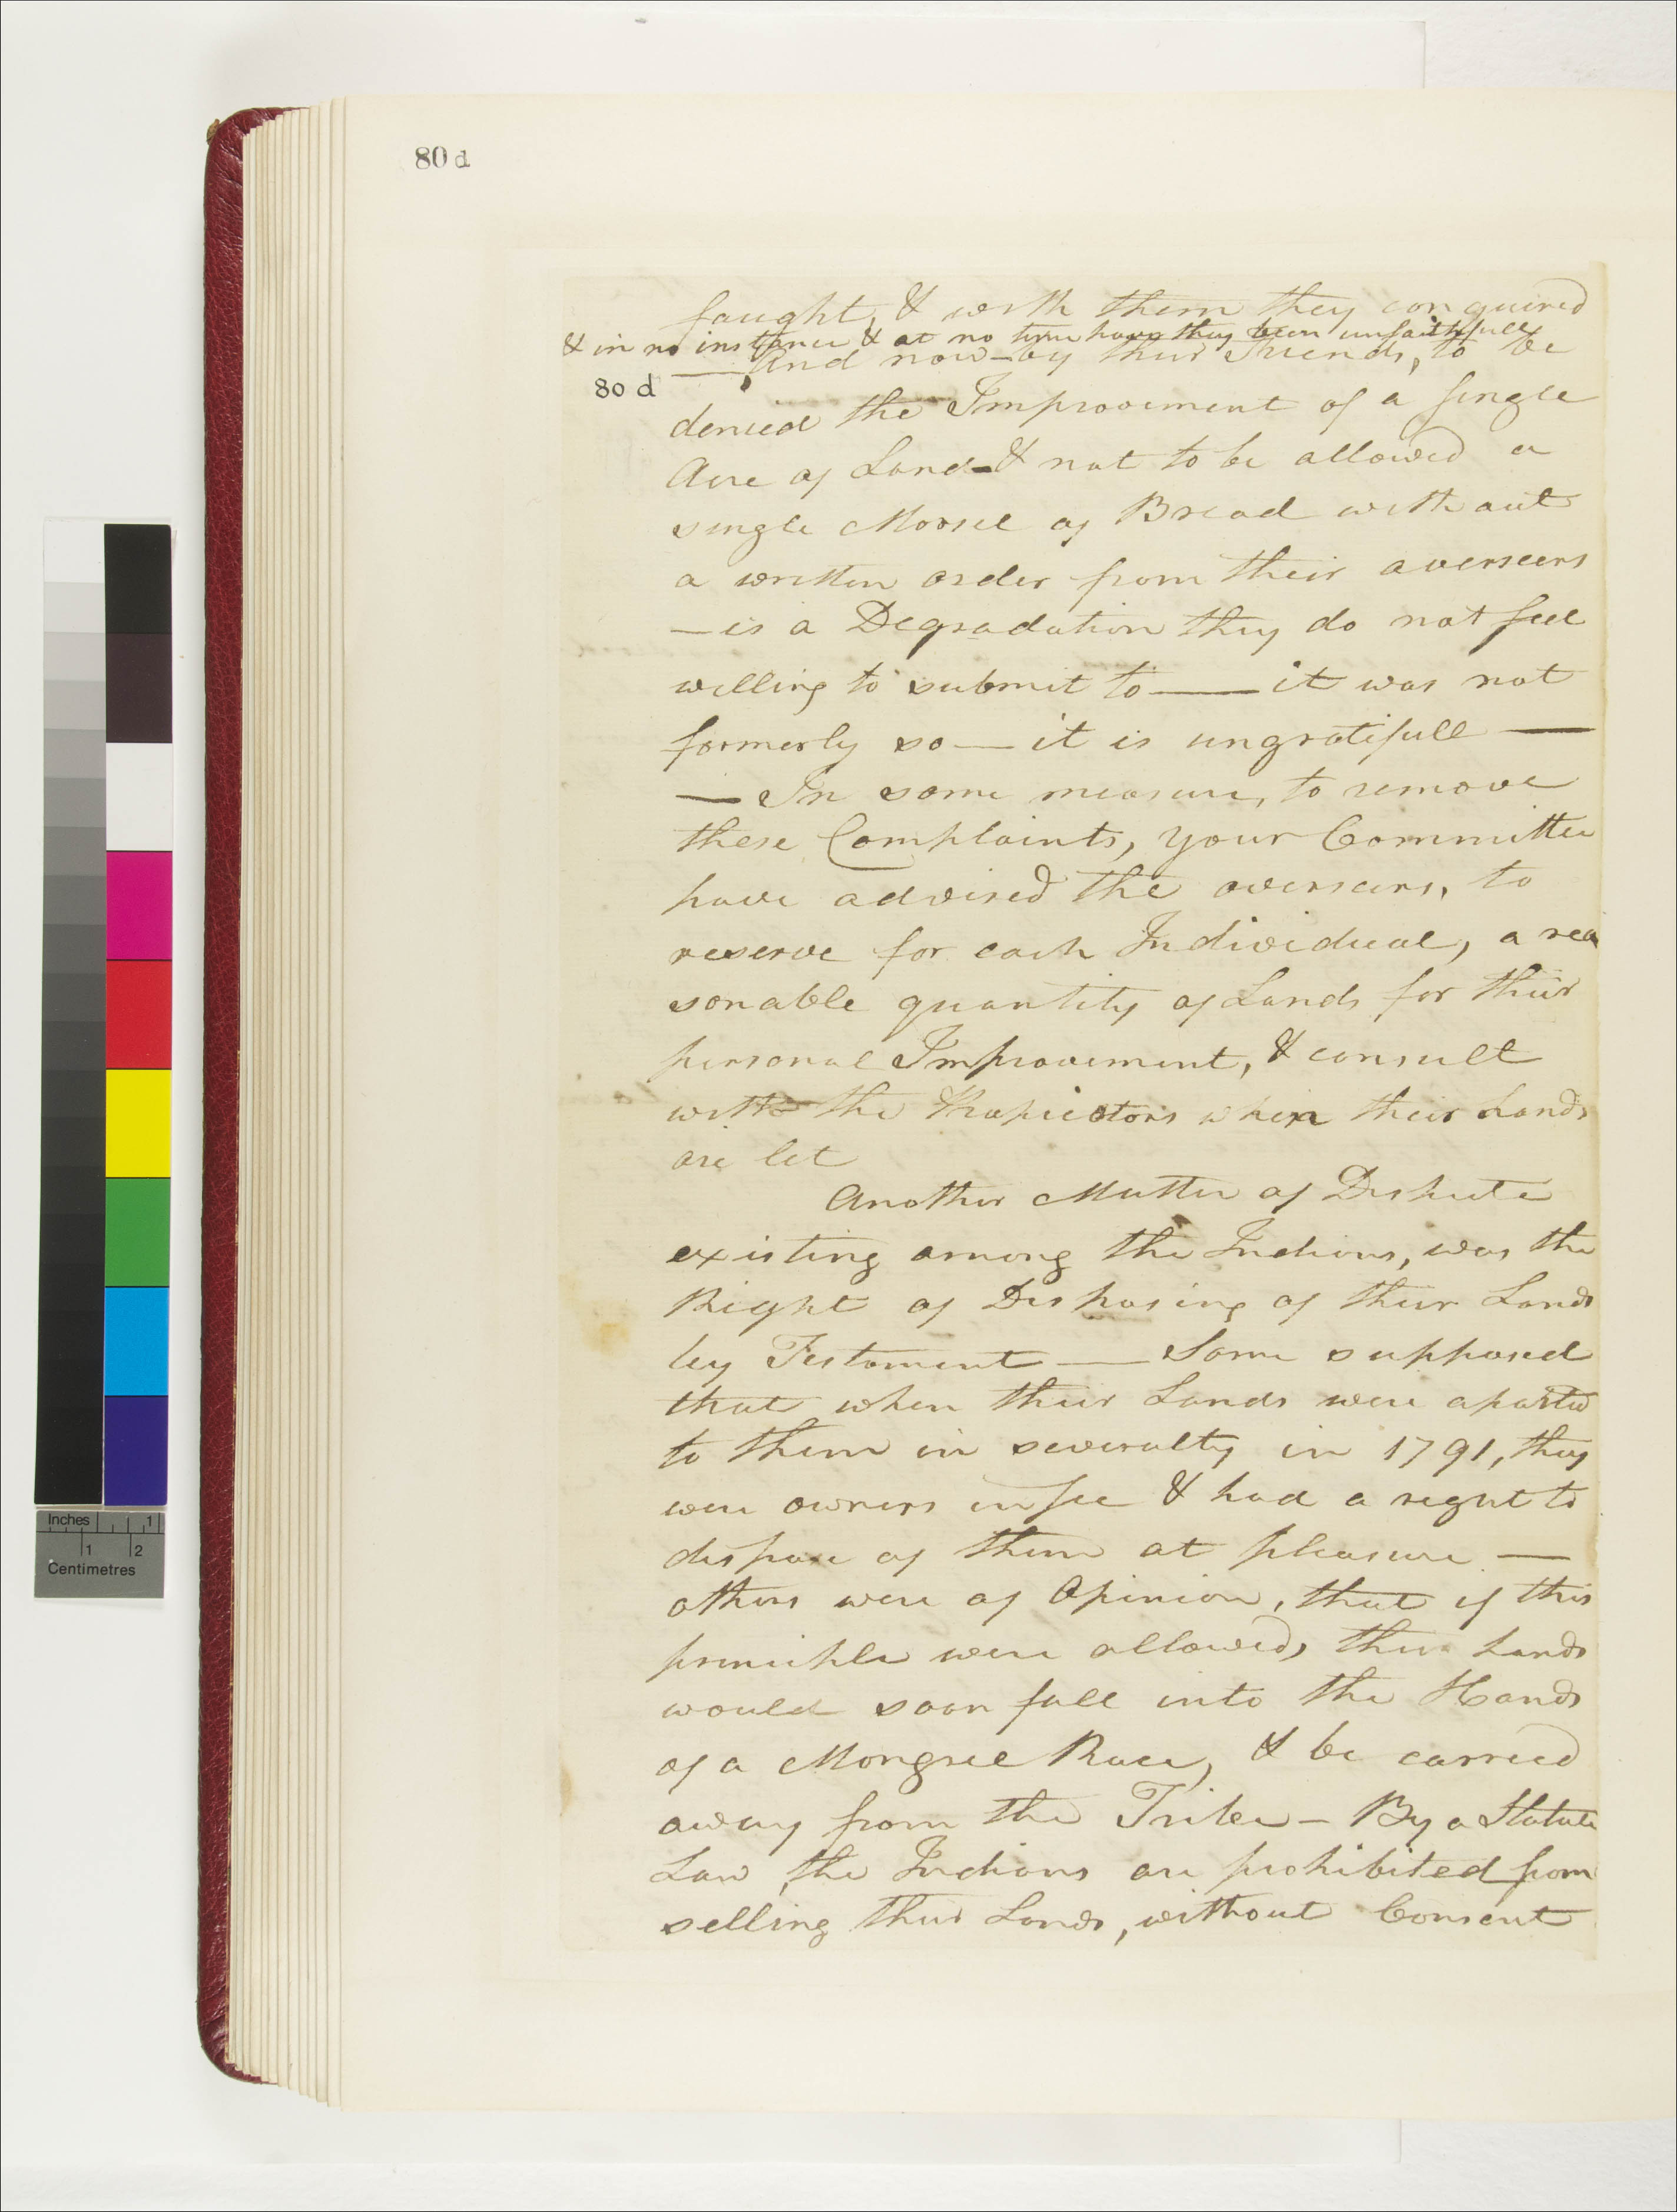 80 d
fought, & with them they conquired
& in no instance & at no time have they been unfaithfull
— And now—by their Friends, to be
80 d
denied the Improovement of a single
Acre of Land—& not to be allowed a
single Morsel of Bread without
a written order from their overseers
—is a Degradation they do not feel
willing to submit to—it was not
formerly so—it is ungratifull—
—In some measure, to remove
these Complaints, your Committee
have advised the overseers, to
reserve for each Individual, a rea
sonable quantity of Lands for their
personal Improovement, & consult
with the Propietors when their Lands
are let
Another Matter of Dispute
existing among the Indians, was the
Right of Disposing of their Lands
by Testament—Some supposed
that when their Lands were aparted
to them in severalty in 1791, they
were owners in fee & had a right to
dispose of them at pleasure—
others were of Opinion, that if this
principle were allowed, their Lands
would soon fall into the Hands
of a Mongrel Race, & be carried
away from the Tribe—By a Statute
Law, the Indians are prohibited from
selling their Lands, without Consent
Inches 1
1 2
Centimetres